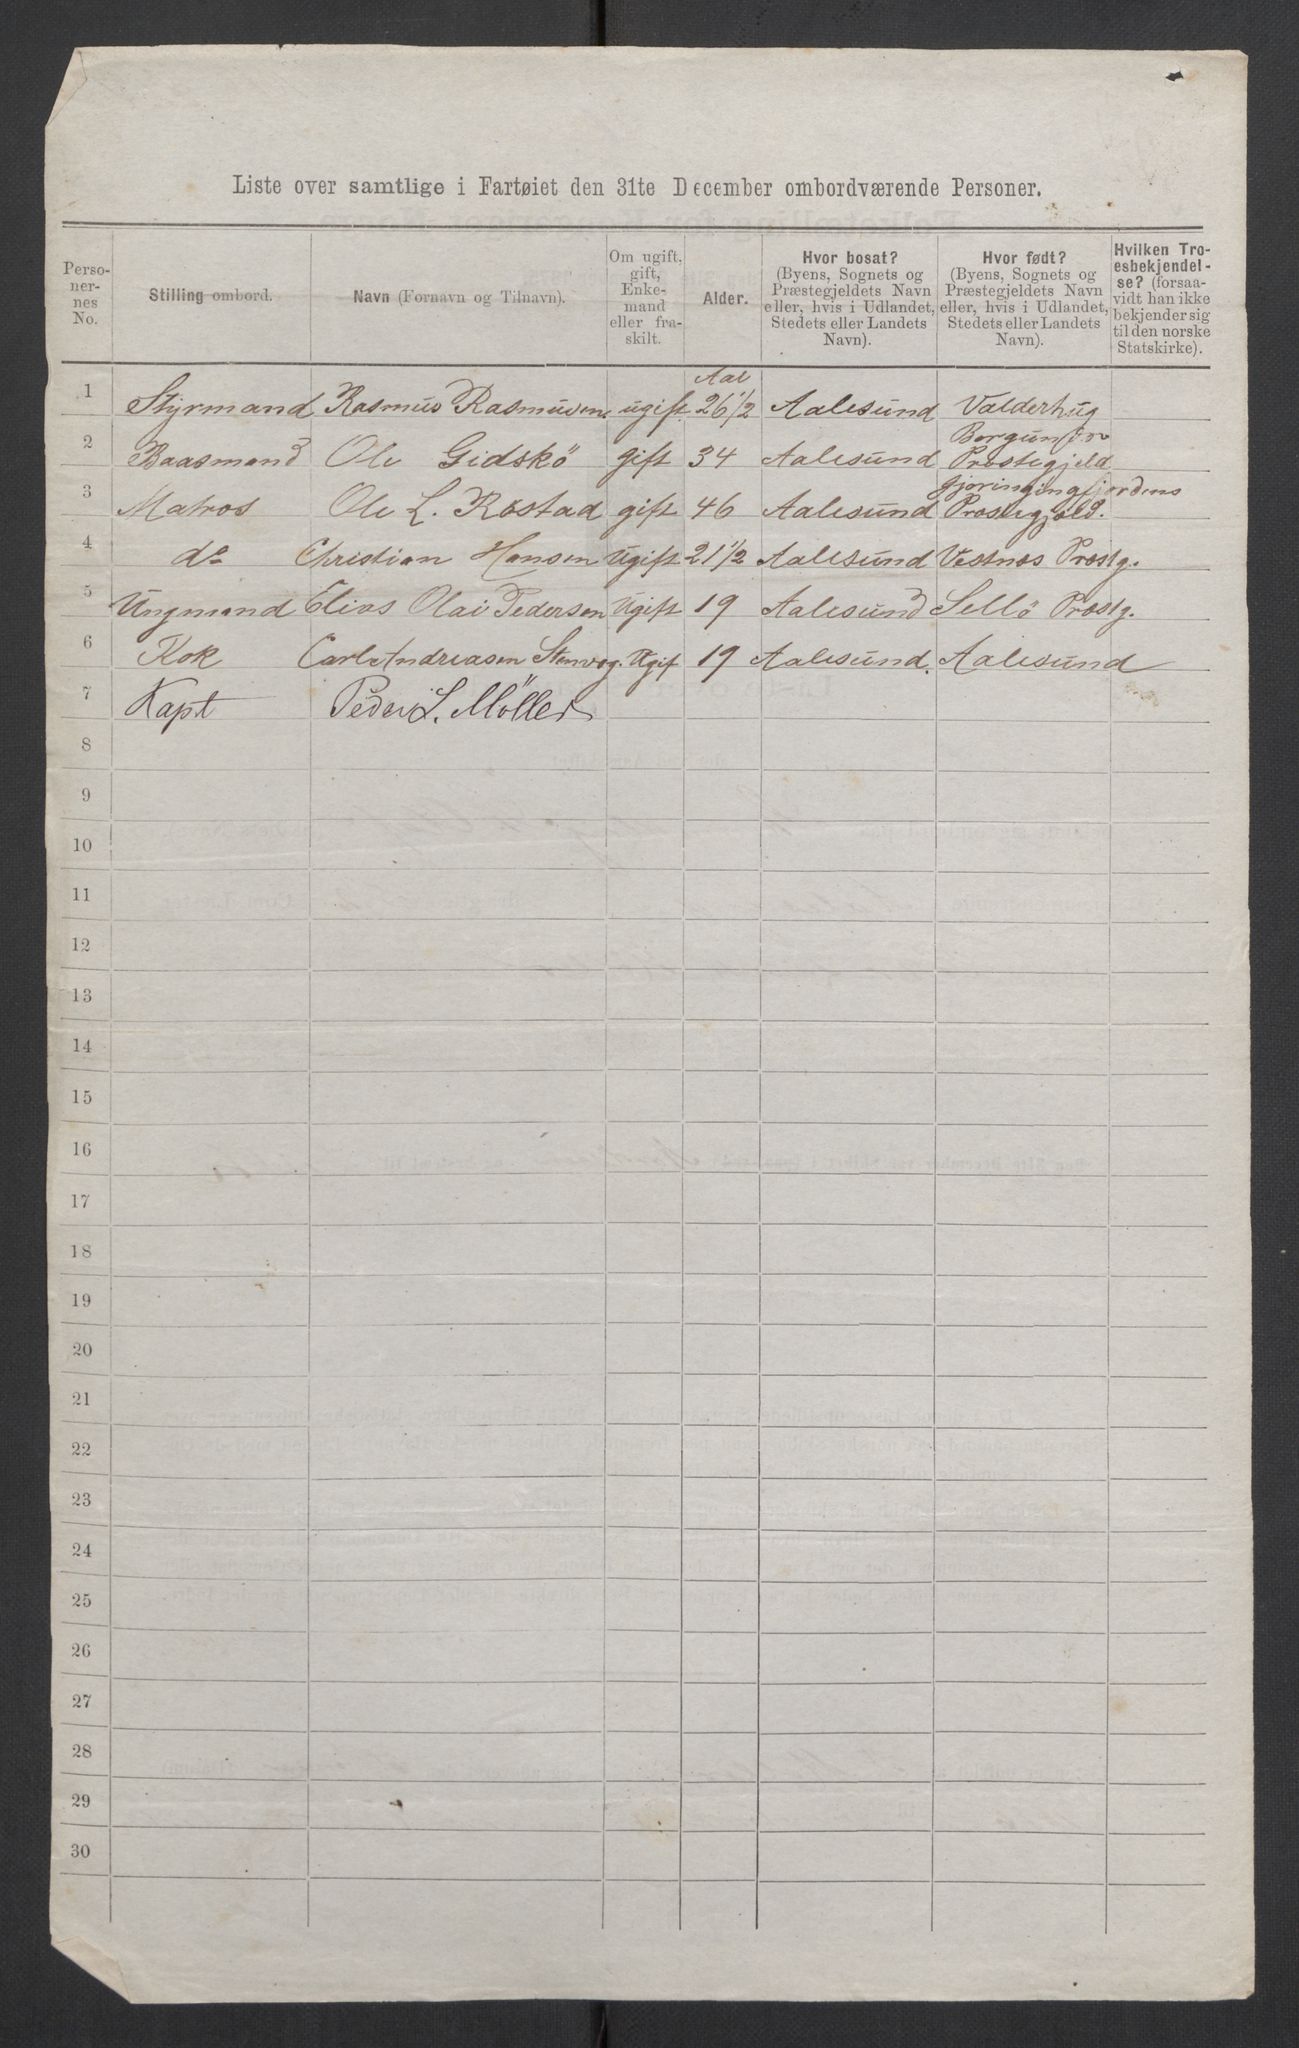 Liste over samtlige i Fartøiet den 31te December ombordværende Personer.
Perso-
ner-
nes
No.
Stilling ombord.
Navn (Fornavn og Tilnavn).
Om ugift,
gift,
Enke-
mand
eller fra-
skilt.
Alder.
Hvor bosat?
(Byens, Sognets og
Præstegjeldets Navn
eller, hvis i Udlandet,
Stedets eller Landets
Navn).
Hvor født?
(Byens, Sognets og
Præstegjeldets Navn
eller, hvis i Udlandet,
Stedets eller Landets
Navn).
Hvilken Tro-
esbekjendel-
se? (forsaa-
vidt han ikke
bekjender sig
til den norske
Statskirke).
Aar
1 Styrmand Rasmus Rasmusen ugift 26 1/2 Aalesund Valderhug
2 Baasmand Ole Gidskö gift 34 Aalesund Borgunds Prostegjeld
3 Matros Ole L. Röstad gift 46 Aalesund Prostegjeld.
4 do Christian Hansen Ugift 21 1/2 Aalesund Vestnes Prostg.
5 Ungmand Elias Olai Pedersen Ugift 19 Aalesund Sellö Prostg.
6 Kok Carl Andreasen Stenvog. Ugif 19 Aalesund. Aalesund
7 Kapt Peder L. Möller
8
9
10
11
12
13
14
15
16
17
18
19
20
21
22
23
24
25
26
27
28
29
30